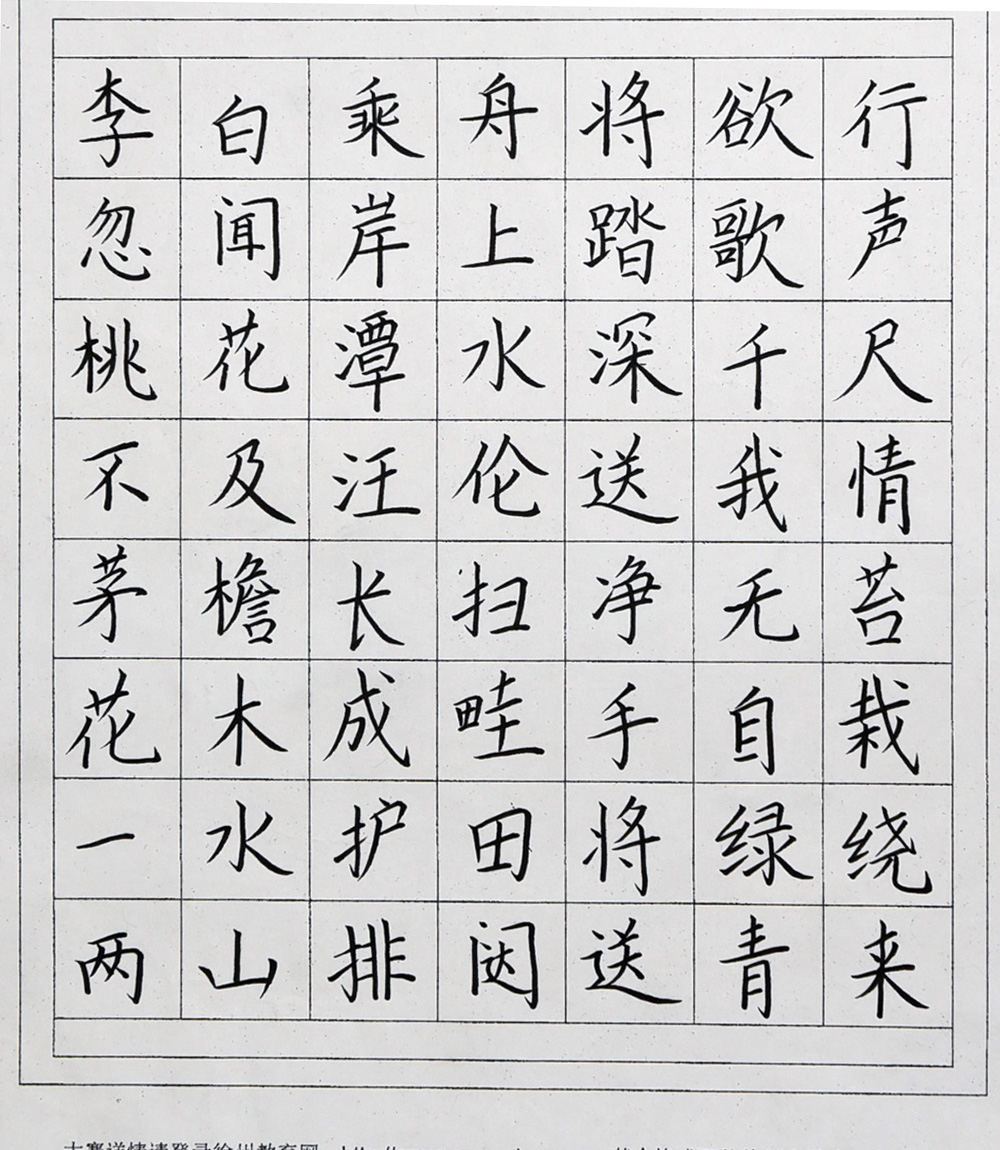 李白乘舟将欲行
忽闻岸上踏歌声
桃花潭水深千尺
不及汪伦送我情
茅檐长扫净无苔
花木成畦手自栽
一水护田将绿绕
两山排闼送青来